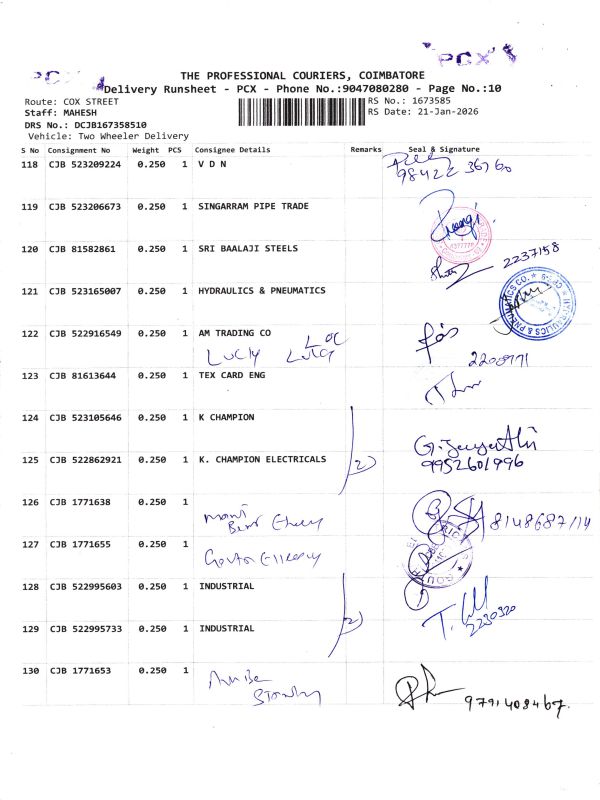 PCX
PCX
THE PROFESSIONAL COURIERS, COIMBATORE
Delivery Runsheet - PCX - Phone No.:9047080280 - Page No.:10
Route: COX STREET
RS No.: 1673585
Staff: MAHESH
RS Date: 21-Jan-2026
DRS No.: DCJB167358510
Vehicle: Two Wheeler Delivery
S No Consignment No Weight PCS Consignee Details Remarks Seal & Signature
118 CJB 523209224 0.250 1 V D N
98422 36760
119 CJB 523206673 0.250 1 SINGARRAM PIPE TRADE
120 CJB 81582861 0.250 1 SRI BAALAJI STEELS
2237158
121 CJB 523165007 0.250 1 HYDRAULICS & PNEUMATICS
HYDRAULICS & PNEUMATICS CO.
122 CJB 522916549 0.250 1 AM TRADING CO
Lucky
123 CJB 81613644 0.250 1 TEX CARD ENG
124 CJB 523105646 0.250 1 K CHAMPION
125 CJB 522862921 0.250 1 K. CHAMPION ELECTRICALS 2
9952601996
126 CJB 1771638 0.250 1
127 CJB 1771655 0.250 1
128 CJB 522995603 0.250 1 INDUSTRIAL
129 CJB 522995733 0.250 1 INDUSTRIAL 2
2230320
130 CJB 1771653 0.250 1
9791408467.